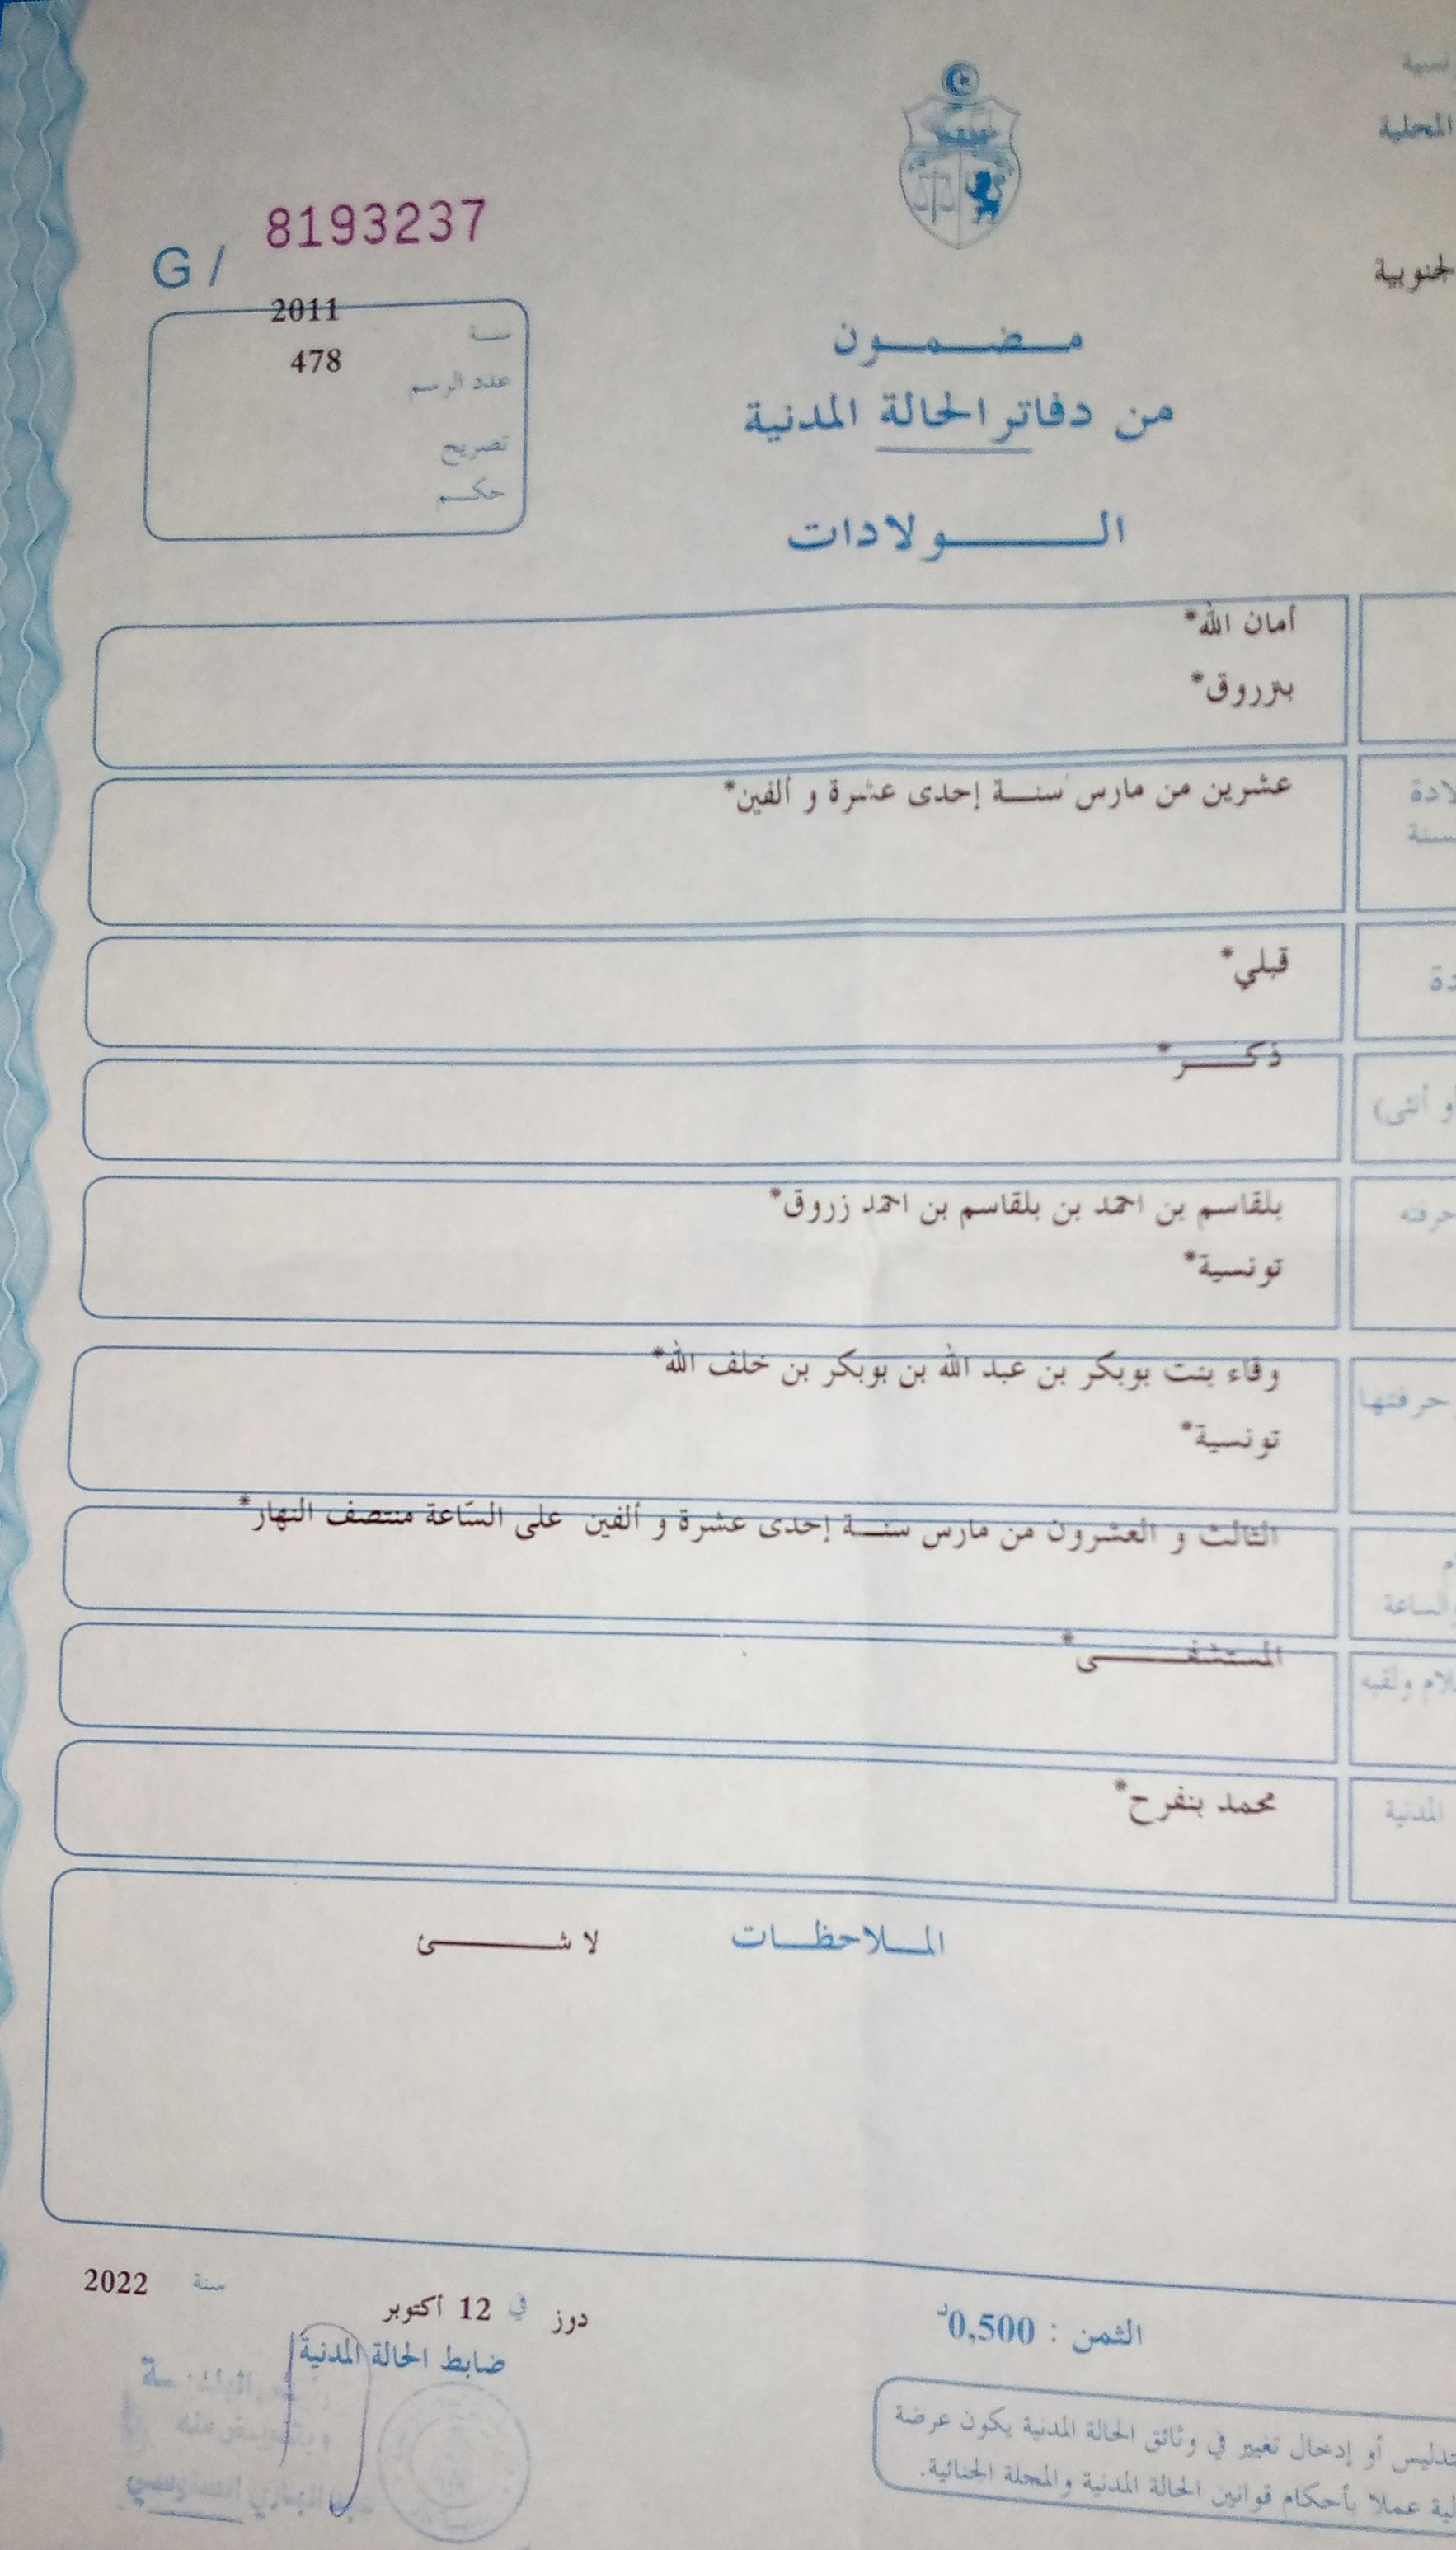 المحلية
G / 8193237
سنة 2011
عدد الرسم 478
تصريح
حكم
مضمون
من دفاتر الحالة المدنية
الولادات
أمان الله*
بنزروق*
عشرين من مارس سنة إحدى عشرة و ألفين*
قبلي*
ذكر*
و أنثى)
بلقاسم بن احمد بن بلقاسم بن احمد زروق*
حرفته
تونسية*
وفاء بنت بوبكر بن عبد الله بن بوبكر بن خلف الله*
حرفتها
تونسية*
الثالث و العشرون من مارس سنة إحدى عشرة و ألفين على السّاعة منتصف النهار*
الساعة
المستشفى*
ولقبه
محمد بنفرح*
المدنية
الملاحظات لا شئ
دوز في 12 أكتوبر سنة 2022
ضابط الحالة المدنية
الثمن : 0,500د
أو إدخال تغيير في وثائق الحالة المدنية يكون عرضة
عملا بأحكام قوانين الحالة المدنية والمجلة الجنائية.